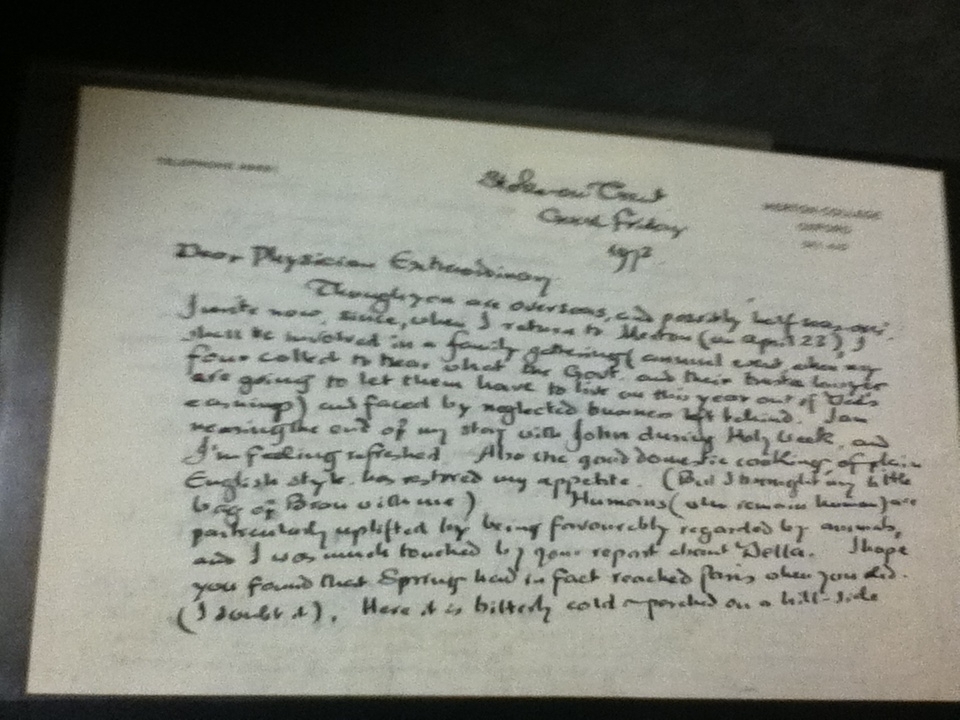 TELEPHONE
Court
Good Friday
1972
MERTON COLLEGE
OXFORD
Dear Physician Extraordinary
Though you are overseas, and possibly
I write now, since, when I return to Merton (on April 23) I
shall be involved in a family gathering (annual event, when my
four collect to hear what the Govt. and their trustee lawyer
are going to let them have to live on this year out of Dad's
earnings) and faced by neglected business left behind. I am
nearing the end of my stay with John during Holy Week, and
I'm feeling refreshed. Also the good domestic cooking, of plain
English style, has restored my appetite. (But I brought my little
bag of with me) Humans (who remain human) are
particularly uplifted by being favourably regarded by animals,
and I was much touched by your report about Della. I hope
you found that Spring had in fact reached Paris when you did.
(I doubt it). Here it is bitterly cold – perched on a hill-side